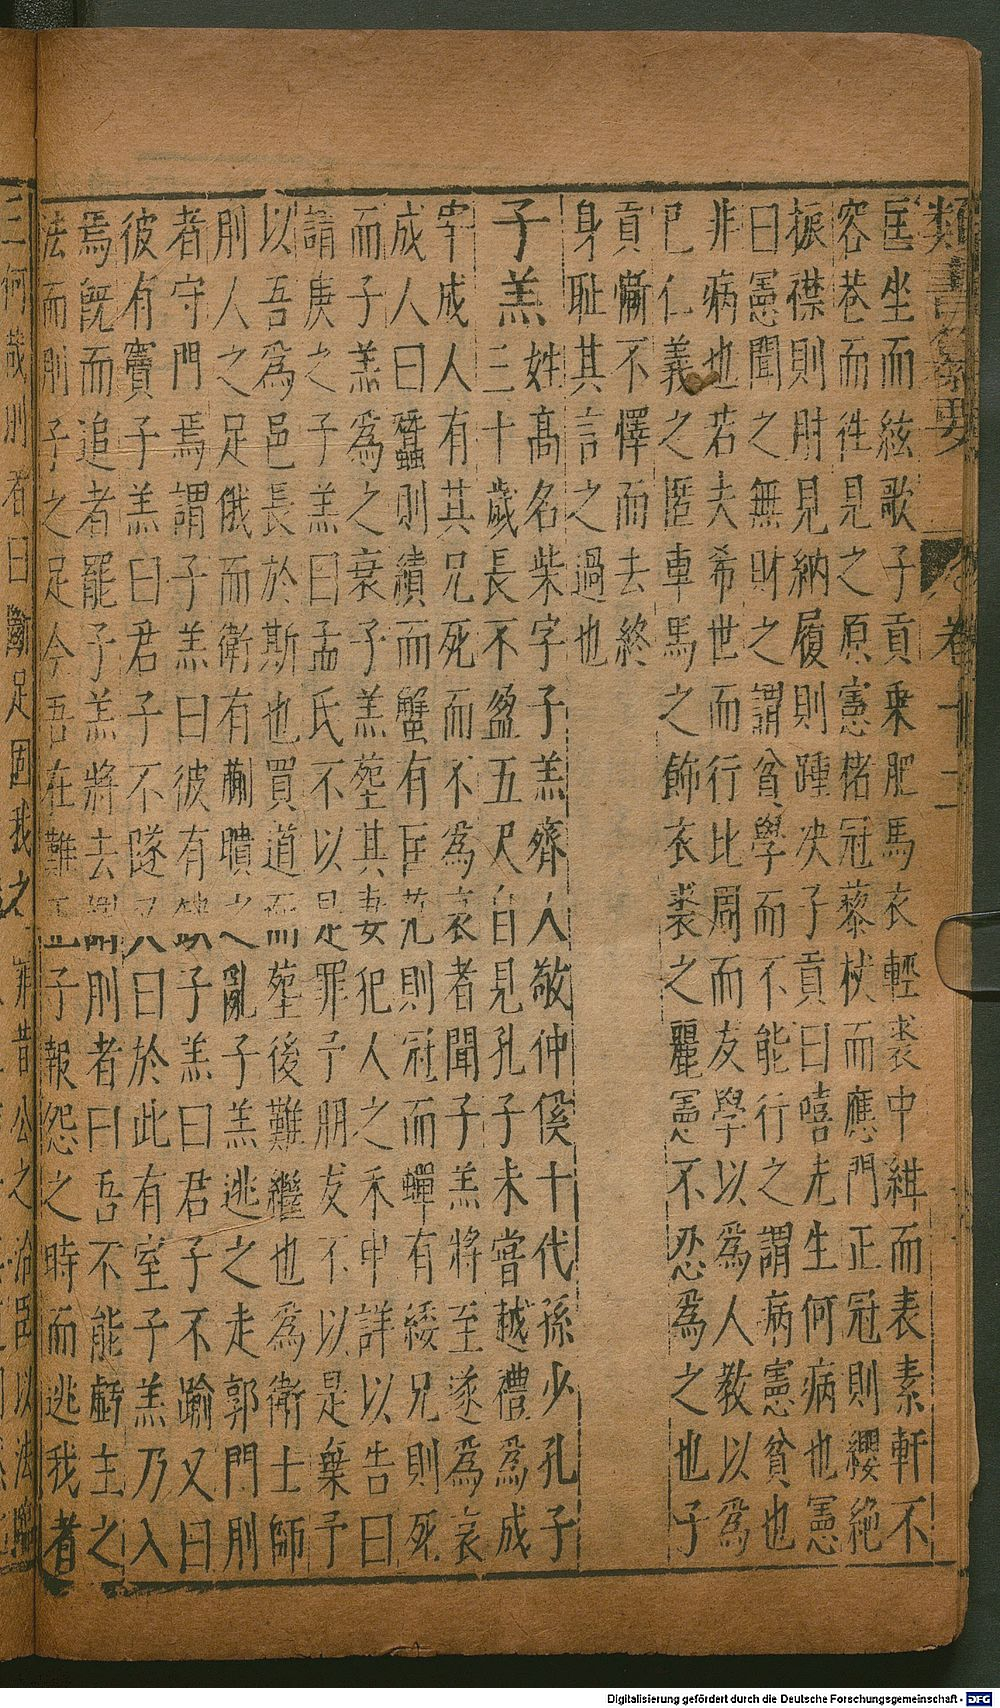 匡坐而絃歌子貢乗肥馬衣輕裘中紺而表素軒不
容巷而徃見之原憲楮冠藜杖而應門正冠則纓絶
振襟則肘見納履則踵决子貢曰嘻先生何病也憲
曰憲聞之無財之謂貧學而不能行之謂病憲貧也
非病也若夫希世而行比周而友學以為人教以為
巳仁義之匿車馬之飾衣裘之麗憲不忍為之也子
貢慚不懌而去終
身恥其言之過也
子羔姓高名柴字子羔齊人敬仲傒十代孫少孔子
三十歲長不盈五尺自見孔子未嘗越禮為成
宰成人有其兄死而不為衰者聞子羔將至遂為衰
成人曰蠶則績而蟹有匡范則冠而蟬有緌兄則死
而子羔為之衰子羔塟其妻犯人之禾申詳以告曰
請庚之子羔曰孟氏不以是罪予朋友不以是棄予
以吾為邑長於斯也買道而塟後難繼也為衛士師
刖人之足俄而衛有蒯聵之亂子羔逃之走郭門刖
者守門焉謂子羔曰彼有缺子羔曰君子不踰又曰
彼有竇子羔曰君子不隧又曰於此有室子羔乃入
焉旣而追者罷子羔將去謂刖者曰吾不能虧主之
法而刖子之足今吾在難正子報怨之時而逃我者
三何哉刖者曰斷足固我之罪昔公之治臣以法
類書纂要
卷十二
Digitalisierung gefördert durch die Deutsche Forschungsgemeinschaft - DFG